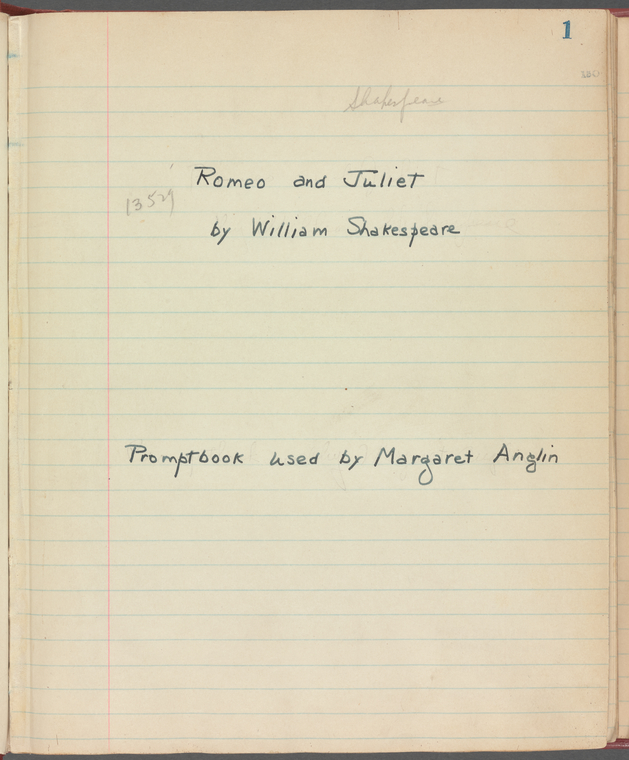 1
Shakespeare
Romeo and Juliet
by William Shakespeare
Promptbook used by Margaret Anglin